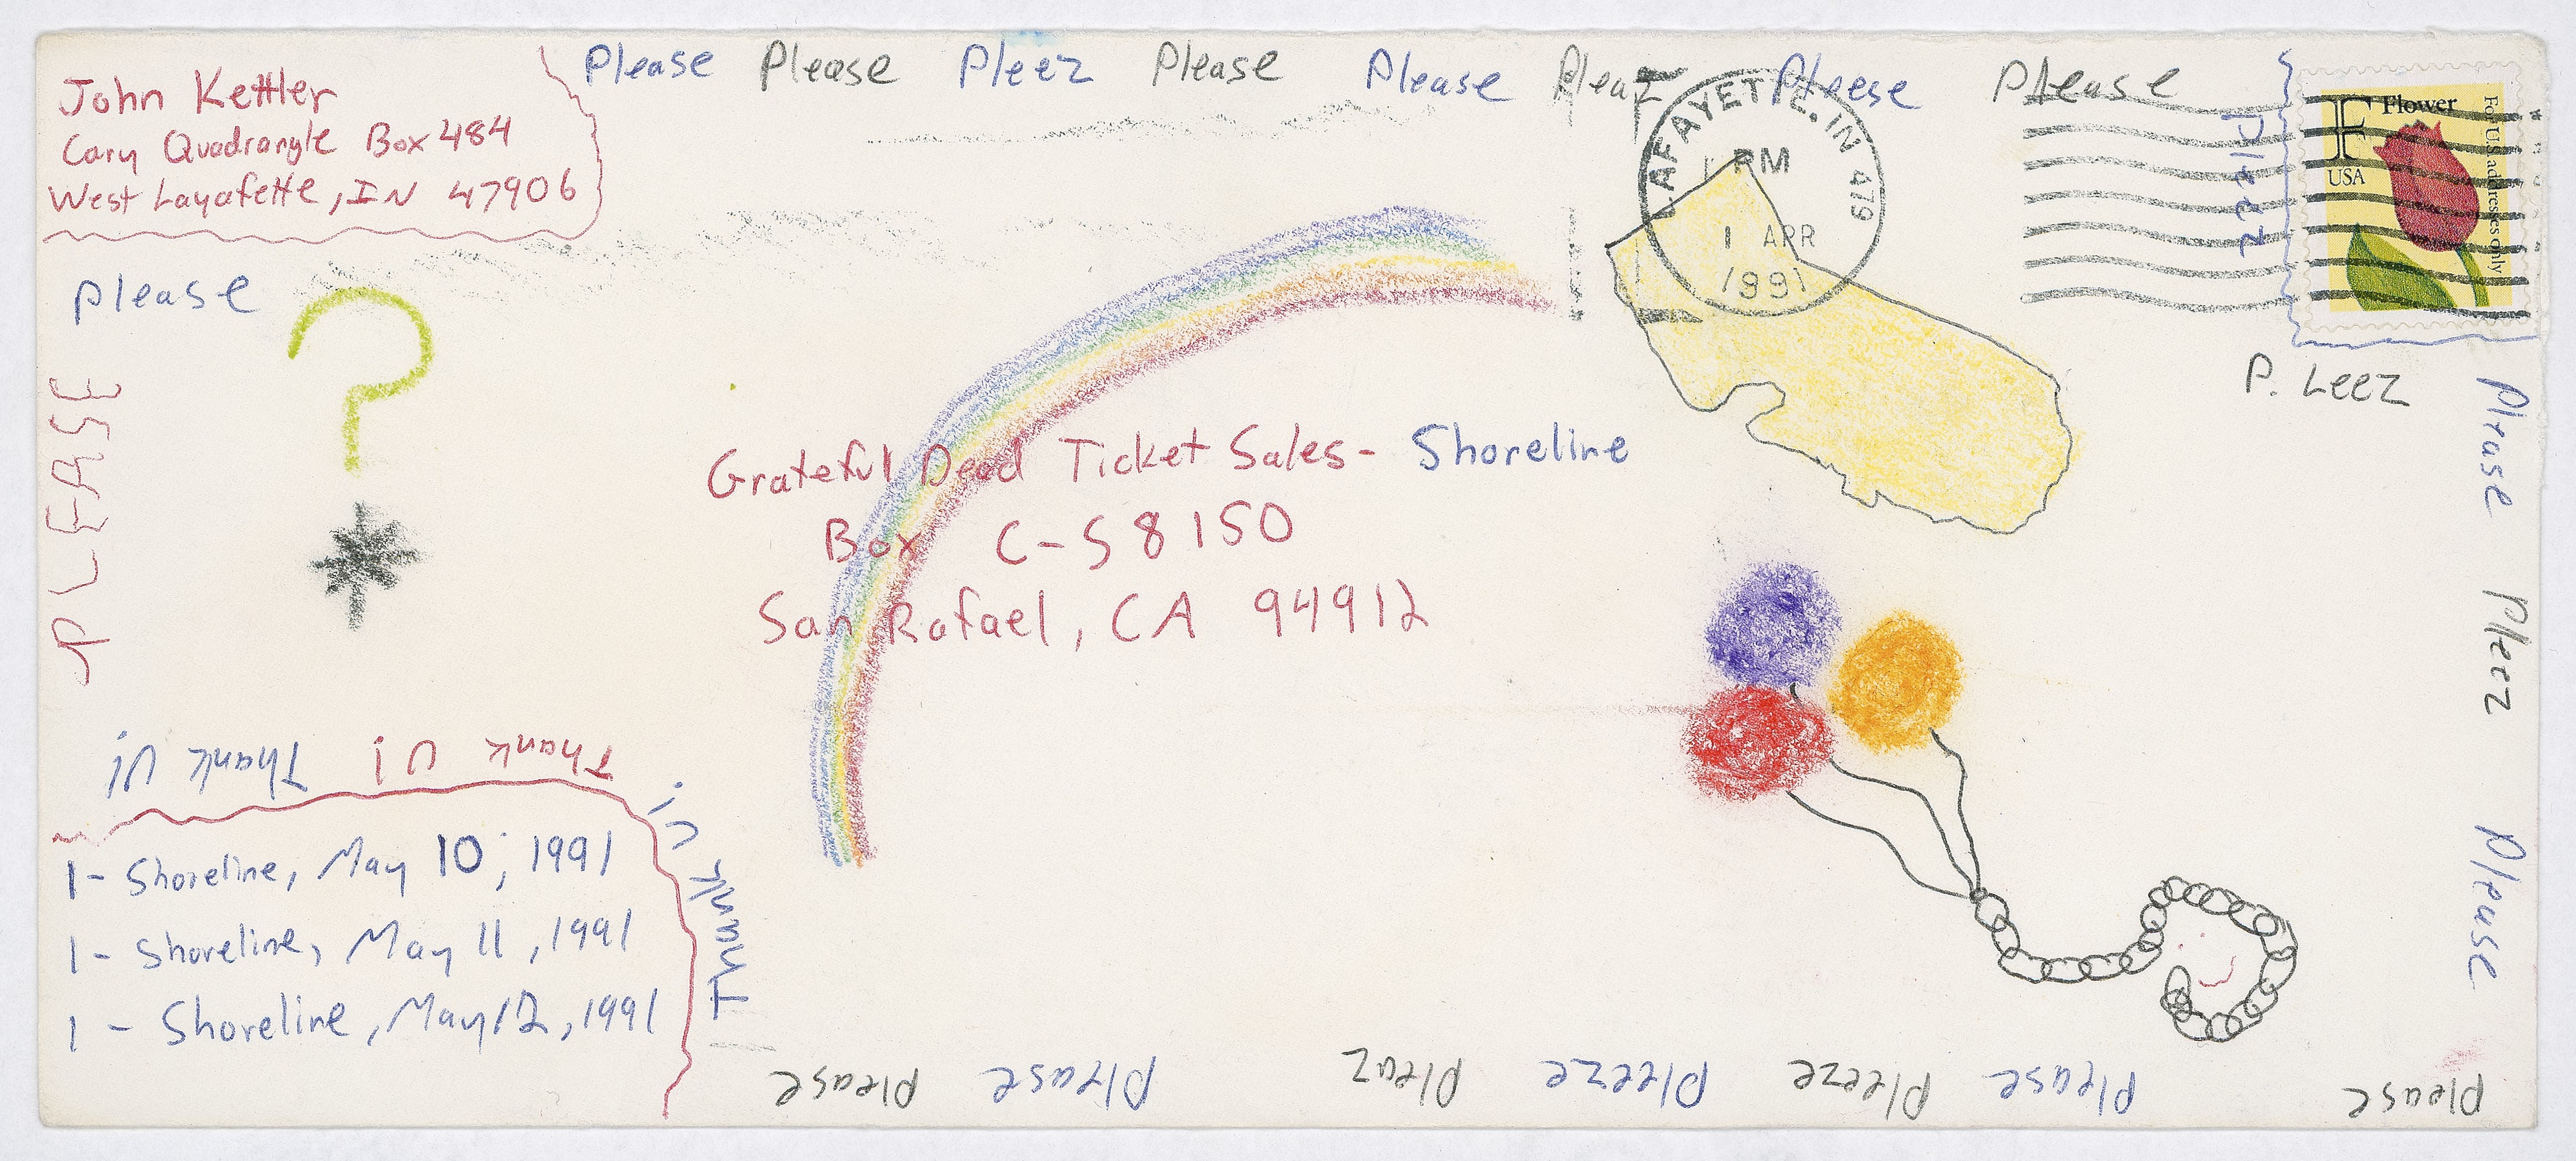 John Kettler
Cary Quadrangle Box 484
West Layafette, IN 47906
Please Please Pleez Please Please Pleaz Pleese Please
Pleez
F Flower
USA
For U.S. addresses only
LAFAYETTE, IN 479
PM
1 APR
1991
P. Leez
Please Pleez Please
please
?
*
PLEASE
Grateful Dead Ticket Sales- Shoreline
Box C-S8150
San Rafael, CA 94912
Thank U! Thank U!
Thank U!
1- Shoreline, May 10, 1991
1- Shoreline, May 11, 1991
1- Shoreline, May 12, 1991
Please Please Pleeze Pleeze Pleaz Please Please